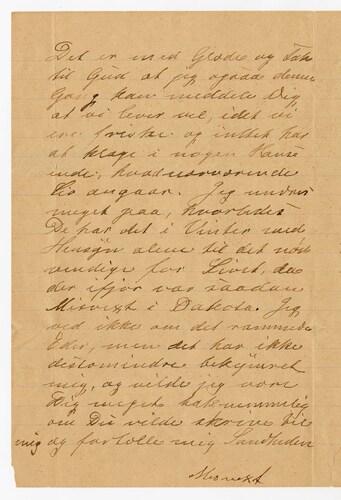 Det er med Glæde og Tak
til Gud at jeg ogsaa denne
Gang kan meddele Dig
at vi lever vel, idet vi
ere friske og intet har
at klage i nogen Hense
ende, hvad nærværende
Liv angaar. Jeg undres
meget paa, hvorledes
De har det i Vinter med
Hensyn alene til det nød
vendige for Livet, da
der ifjor var saadan
Misvext i Dakota. Jeg
ved ikke om det rammede
Eder, men det har ikke
destomindre bekymret
mig, og vilde jeg være
Dig meget taknemmelig
om Du vilde skrive til
mig og fortelle mig Sandheden
Misvext